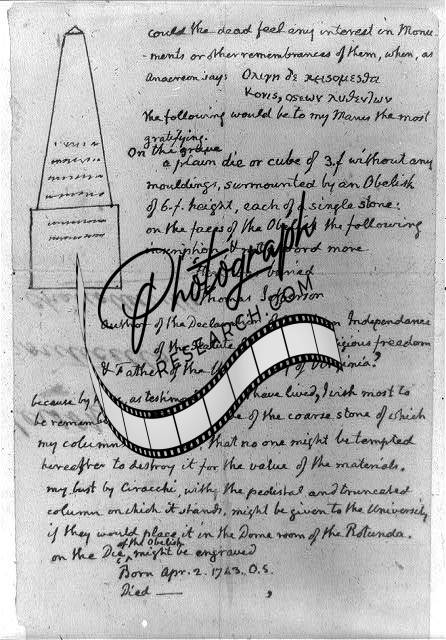 could the dead feel any interest in Monu-
-ments or other remembrances of them, when, as
Anacreon says Ολιγη δε κεισομεσθα
Κονις, οστεων λυθεντων
the following would be to my Manes the most
gratifying.
On the grave
a plain die or cube of 3.f without any
mouldings, surmounted by an Obelisk
of 6.f. height, each of a single stone:
on the faces of the Obelisk the following
inscription, & not a word more
buried
Thomas Jefferson
Author of the Declaration Independance
of the Statute religious freedom
& Father of the of Virginia.
because by as testim have lived, I wish most to
be remembe of the coarse stone of which
my column that no one might be tempted
hereafter to destroy it for the value of the materials.
my bust by Ciracchi, with the pedestal and truncated
column on which it stands, might be given to the University
if they would place it in the Dome room of the Rotunda.
on the Die of the Obelisk, might be engraved
Born Apr. 2. 1743. O.S.
Died —
Photograph
RESEARCH.COM